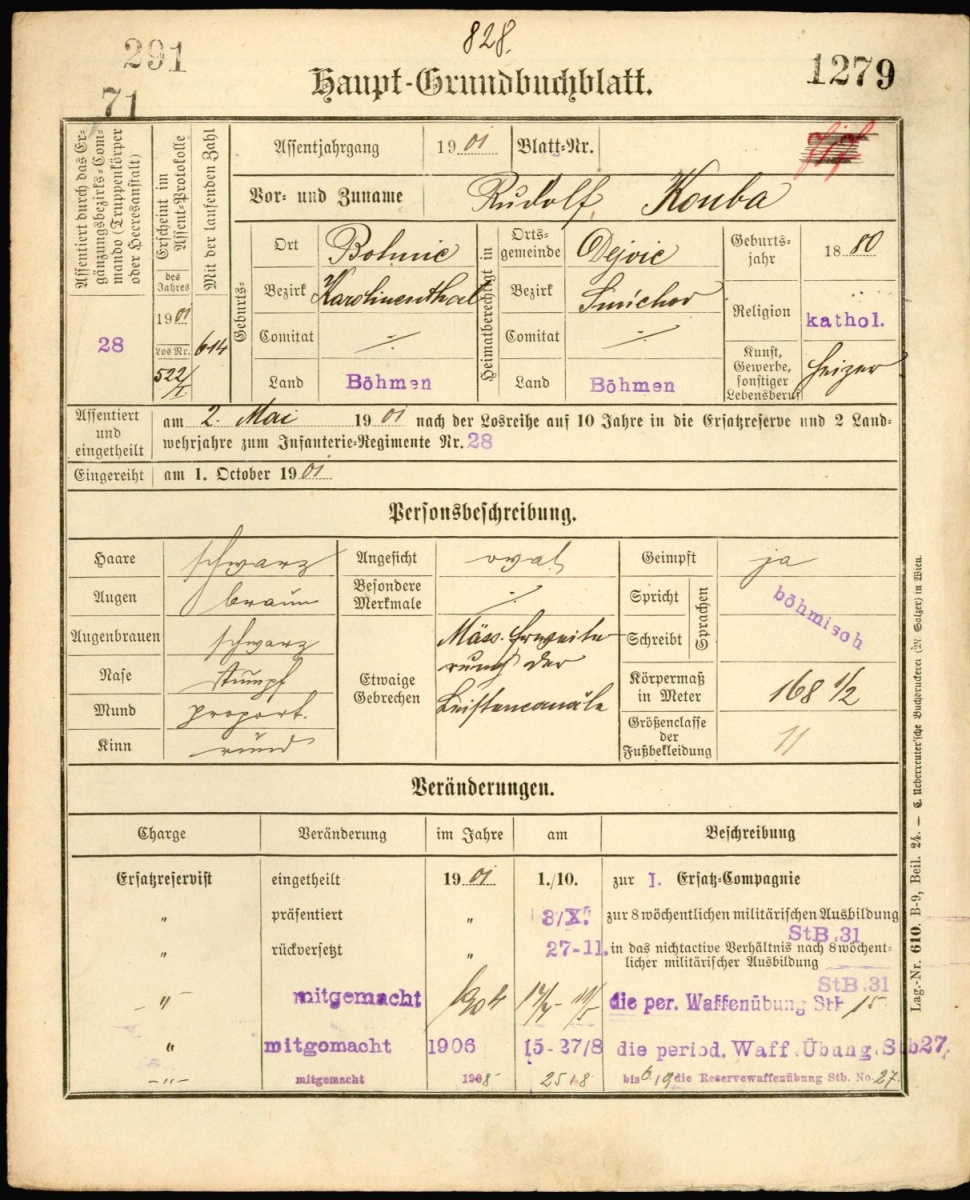 828.
291
1279
71
Haupt-Grundbuchblatt.
Assentiert durch das Er-
gänzungsbezirks-Com-
mando (Truppenkörper
oder Heeresanstalt)
28
Erscheint im
Assent-Protokolle
des
Jahres
1901
Los Nr.
522/I.
Mit der laufenden Zahl
614
Assentjahrgang 1901 Blatt-Nr.
Vor- und Zuname Rudolf Kouba
Geburts-
Ort Bohnic
Bezirk Karolinenthal
Comitat ·/·
Land Böhmen
Heimatberechtigt in
Orts-
gemeinde Dejvic
Bezirk Smichov
Comitat ·/·
Land Böhmen
Geburts-
jahr 1880
Religion kathol.
Kunst,
Gewerbe,
sonstiger
Lebensberuf Heizer
Assentiert
und
eingetheilt
am 2. Mai 1901 nach der Losreihe auf 10 Jahre in die Ersatzreserve und 2 Land-
wehrjahre zum Infanterie-Regimente Nr. 28
Eingereiht am 1. October 1901
Personsbeschreibung.
Haare schwarz
Augen braun
Augenbrauen schwarz
Nase stumpf
Mund proport.
Kinn rund
Angesicht oval
Besondere
Merkmale ·/·
Etwaige
Gebrechen
Mäss. Erweite-
rung der
Leistencanäle
Geimpft ja
Spricht
Schreibt
Sprachen
böhmisch
Körpermaß
in Meter 168 1/2
Größenclasse
der
Fußbekleidung 11
Veränderungen.
Charge Veränderung im Jahre am Beschreibung
Ersatzreservist eingetheilt 1901 1./10. zur I. Ersatz-Compagnie
" präsentiert " 3/X. zur 8 wöchentlichen militärischen Ausbildung
StB.31
" rückversetzt " 27-11. in das nichtactive Verhältnis nach 8 wöchent-
licher militärischer Ausbildung
StB.31
-"- mitgemacht 1904 die per. Waffenübung Stb 15
" mitgemacht 1906 15-27/8 die period. Waff.Übung.Stb27
-"- mitgemacht 1908 25/8 bis 6/9 die Reservewaffenübung Stb. No. 27.
Lag.-Nr. 610. B-9, Beil. 24. — C. Ueberreuter'sche Buchdruckerei (M. Salzer) in Wien.